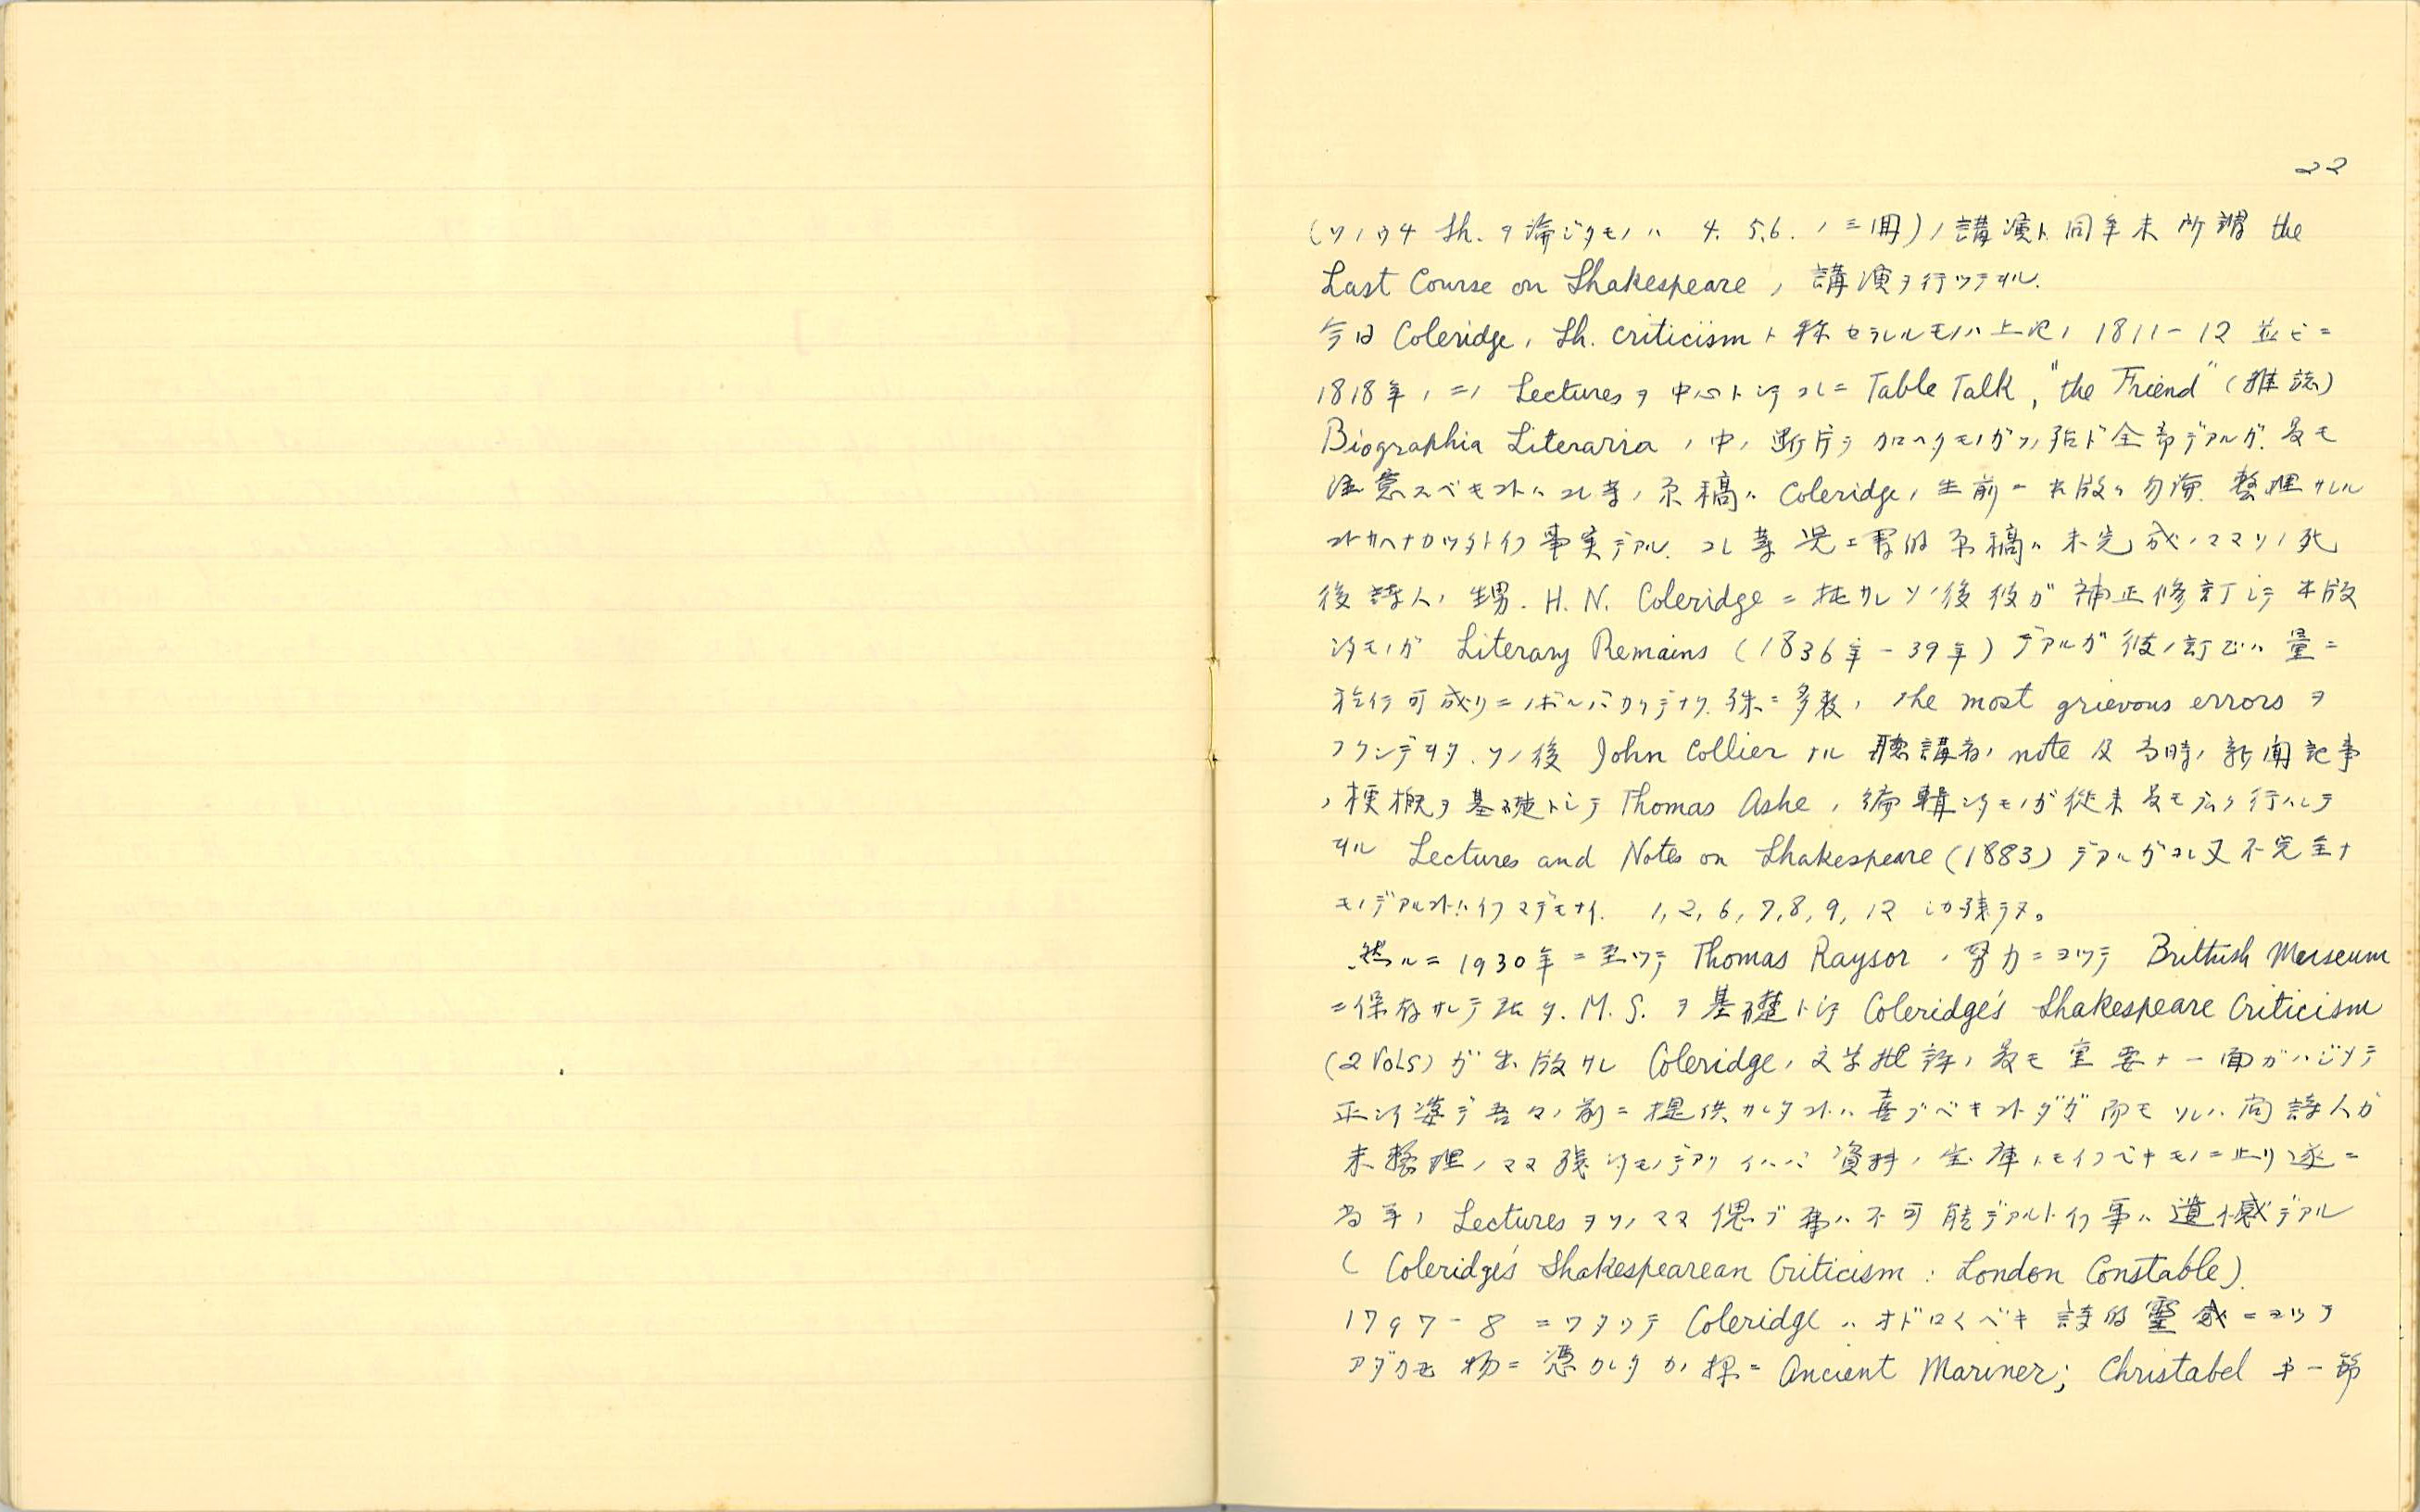 22
(ソノウチ Sh. ヲ論ジタモノハ 4. 5.6. ノ三冊)ノ講演ト同年末所謂 the
Last Course on Shakespeare ノ講演ヲ行ツテヰル.
今日 Coleridge ノ Sh. criticism ト称セラレルモノハ上記ノ 1811-12 並ビニ
1818年ノ二ノ Lectures ヲ中心トシテコレニ Table Talk, "the Friend" (雑誌)
Biographia Literaria ノ中ノ断片ヲ加ヘタモノガソノ殆ド全部デアルガ. 最モ
注意スベキコトハコレ等ノ原稿ハ Coleridge ノ生前ニ出版ハ勿論. 整理サレル
コトサヘナカツタトイフ事実デアル. コレ等覚エ書的原稿ハ未完成ノママソノ死
後詩人ノ甥. H. N. Coleridge ニ托サレソノ後彼ガ補正修訂シテ出版
シタモノガ Literary Remains (1836年-39年) デアルガ彼ノ訂正ハ量ニ
於テ可成リニノボルバカリデナク. 殊ニ多数ノ the most grievous errors ヲ
フクンデヰタ. ソノ後 John Collier ナル聴講者ノ note 及当時ノ新聞記事
ノ梗概ヲ基礎トシテ Thomas Ashe ノ編輯シタモノガ従来最モ広ク行ハレテ
ヰル Lectures and Notes on Shakespeare (1883) デアルガコレ又不完全ナ
モノデアルコトハイフマデモナイ. 1, 2, 6, 7, 8, 9, 12 シカ残ラヌ。
然ルニ 1930年ニ至ツテ Thomas Raysor ノ努力ニヨツテ Brittish Meuseum
ニ保存サレテ居タ. M. S. ヲ基礎トシテ Coleridge's Shakespeare Criticism
(2 Vols) ガ出版サレ Coleridge ノ文学批評ノ最モ重要ナ一面ガハジメテ
正シイ姿デ吾々ノ前ニ提供サレタコトハ喜ブベキコトダガ而モソレハ尚詩人ガ
未整理ノママ残シタモノデアリイハバ資料ノ宝庫トモイフベキモノニ止リ遂ニ
当年ノ Lectures ヲソノママ偲ブ事ハ不可能デアルトイフ事ハ遺憾デアル
( Coleridge's Shakespearean Criticism : London Constable).
1797-8 ニワタツテ Coleridge ハオドロクベキ詩的霊感ニヨツテ
アダカモ物ニ憑カレタカノ様ニ Ancient Mariner; Christabel 第一部